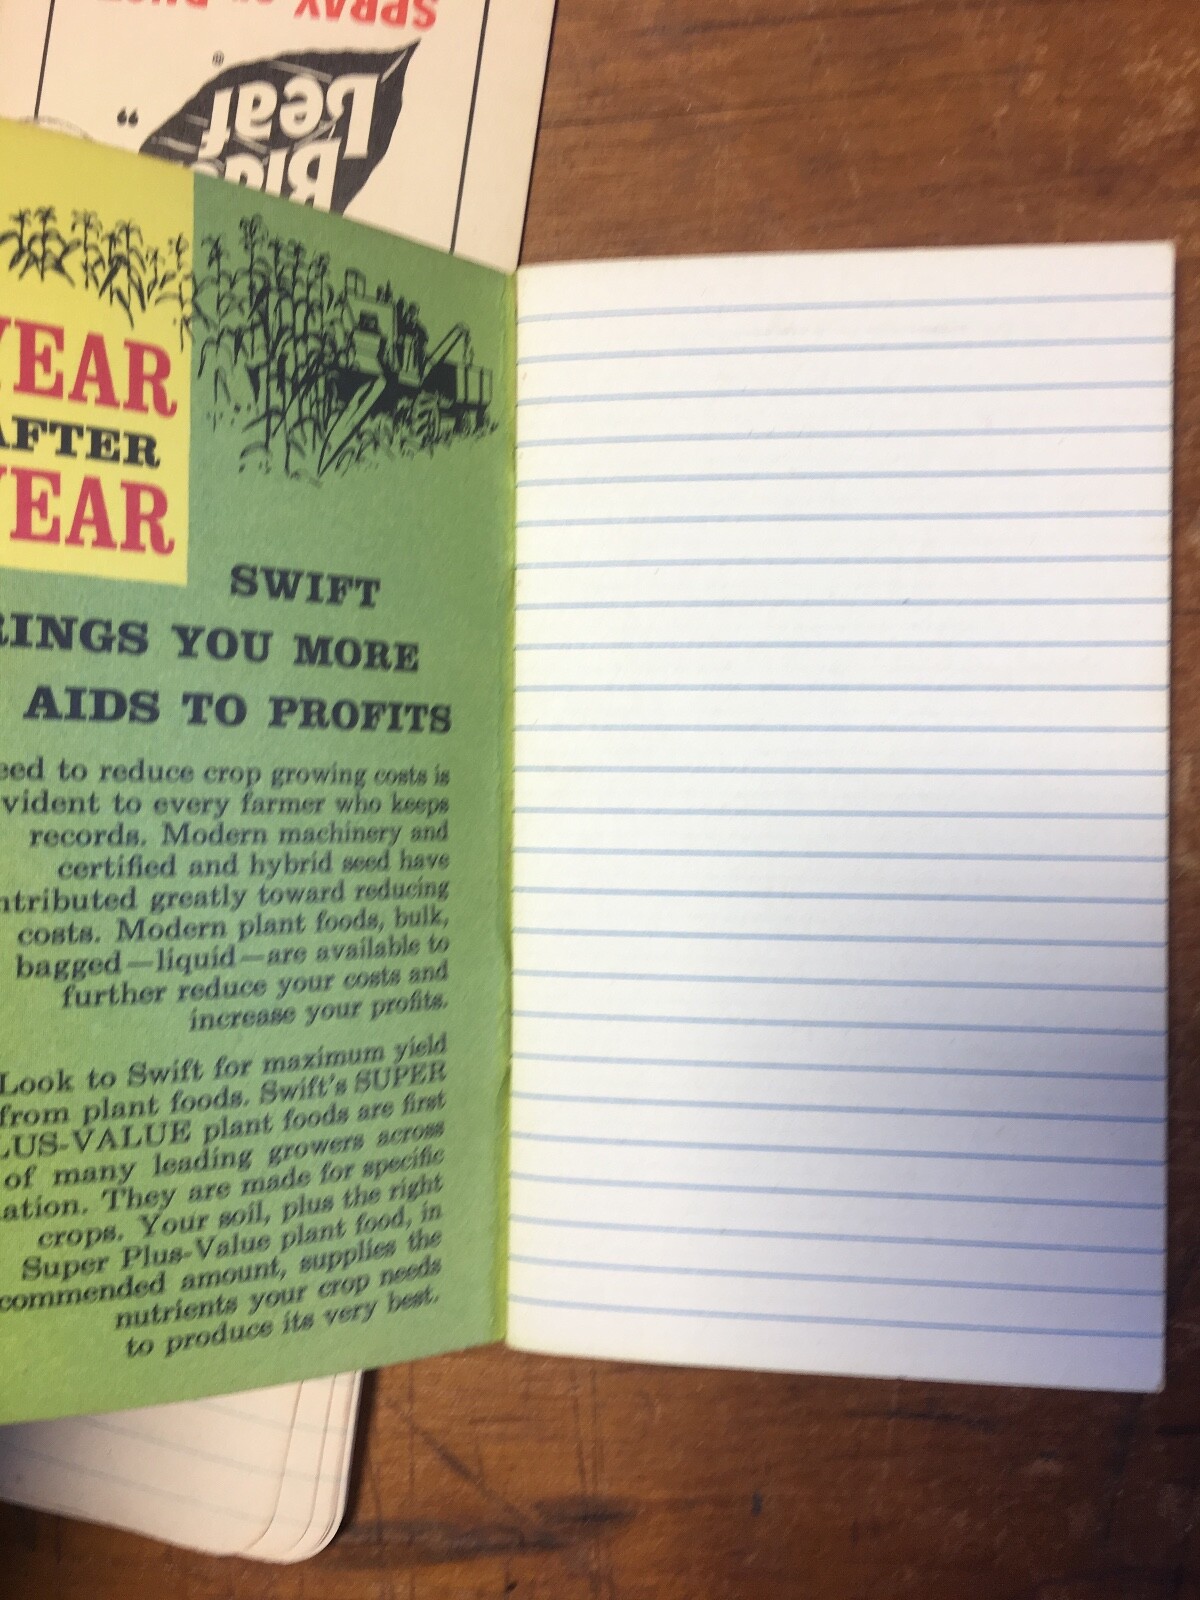 SPRAY
Black
Leaf
®
"
YEAR
AFTER
YEAR
SWIFT
RINGS YOU MORE
AIDS TO PROFITS
eed to reduce crop growing costs is
vident to every farmer who keeps
records. Modern machinery and
certified and hybrid seed have
ntributed greatly toward reducing
costs. Modern plant foods, bulk,
bagged—liquid—are available to
further reduce your costs and
increase your profits.
Look to Swift for maximum yield
from plant foods. Swift's SUPER
LUS-VALUE plant foods are first
of many leading growers across
ation. They are made for specific
crops. Your soil, plus the right
Super Plus-Value plant food, in
commended amount, supplies the
nutrients your crop needs
to produce its very best.